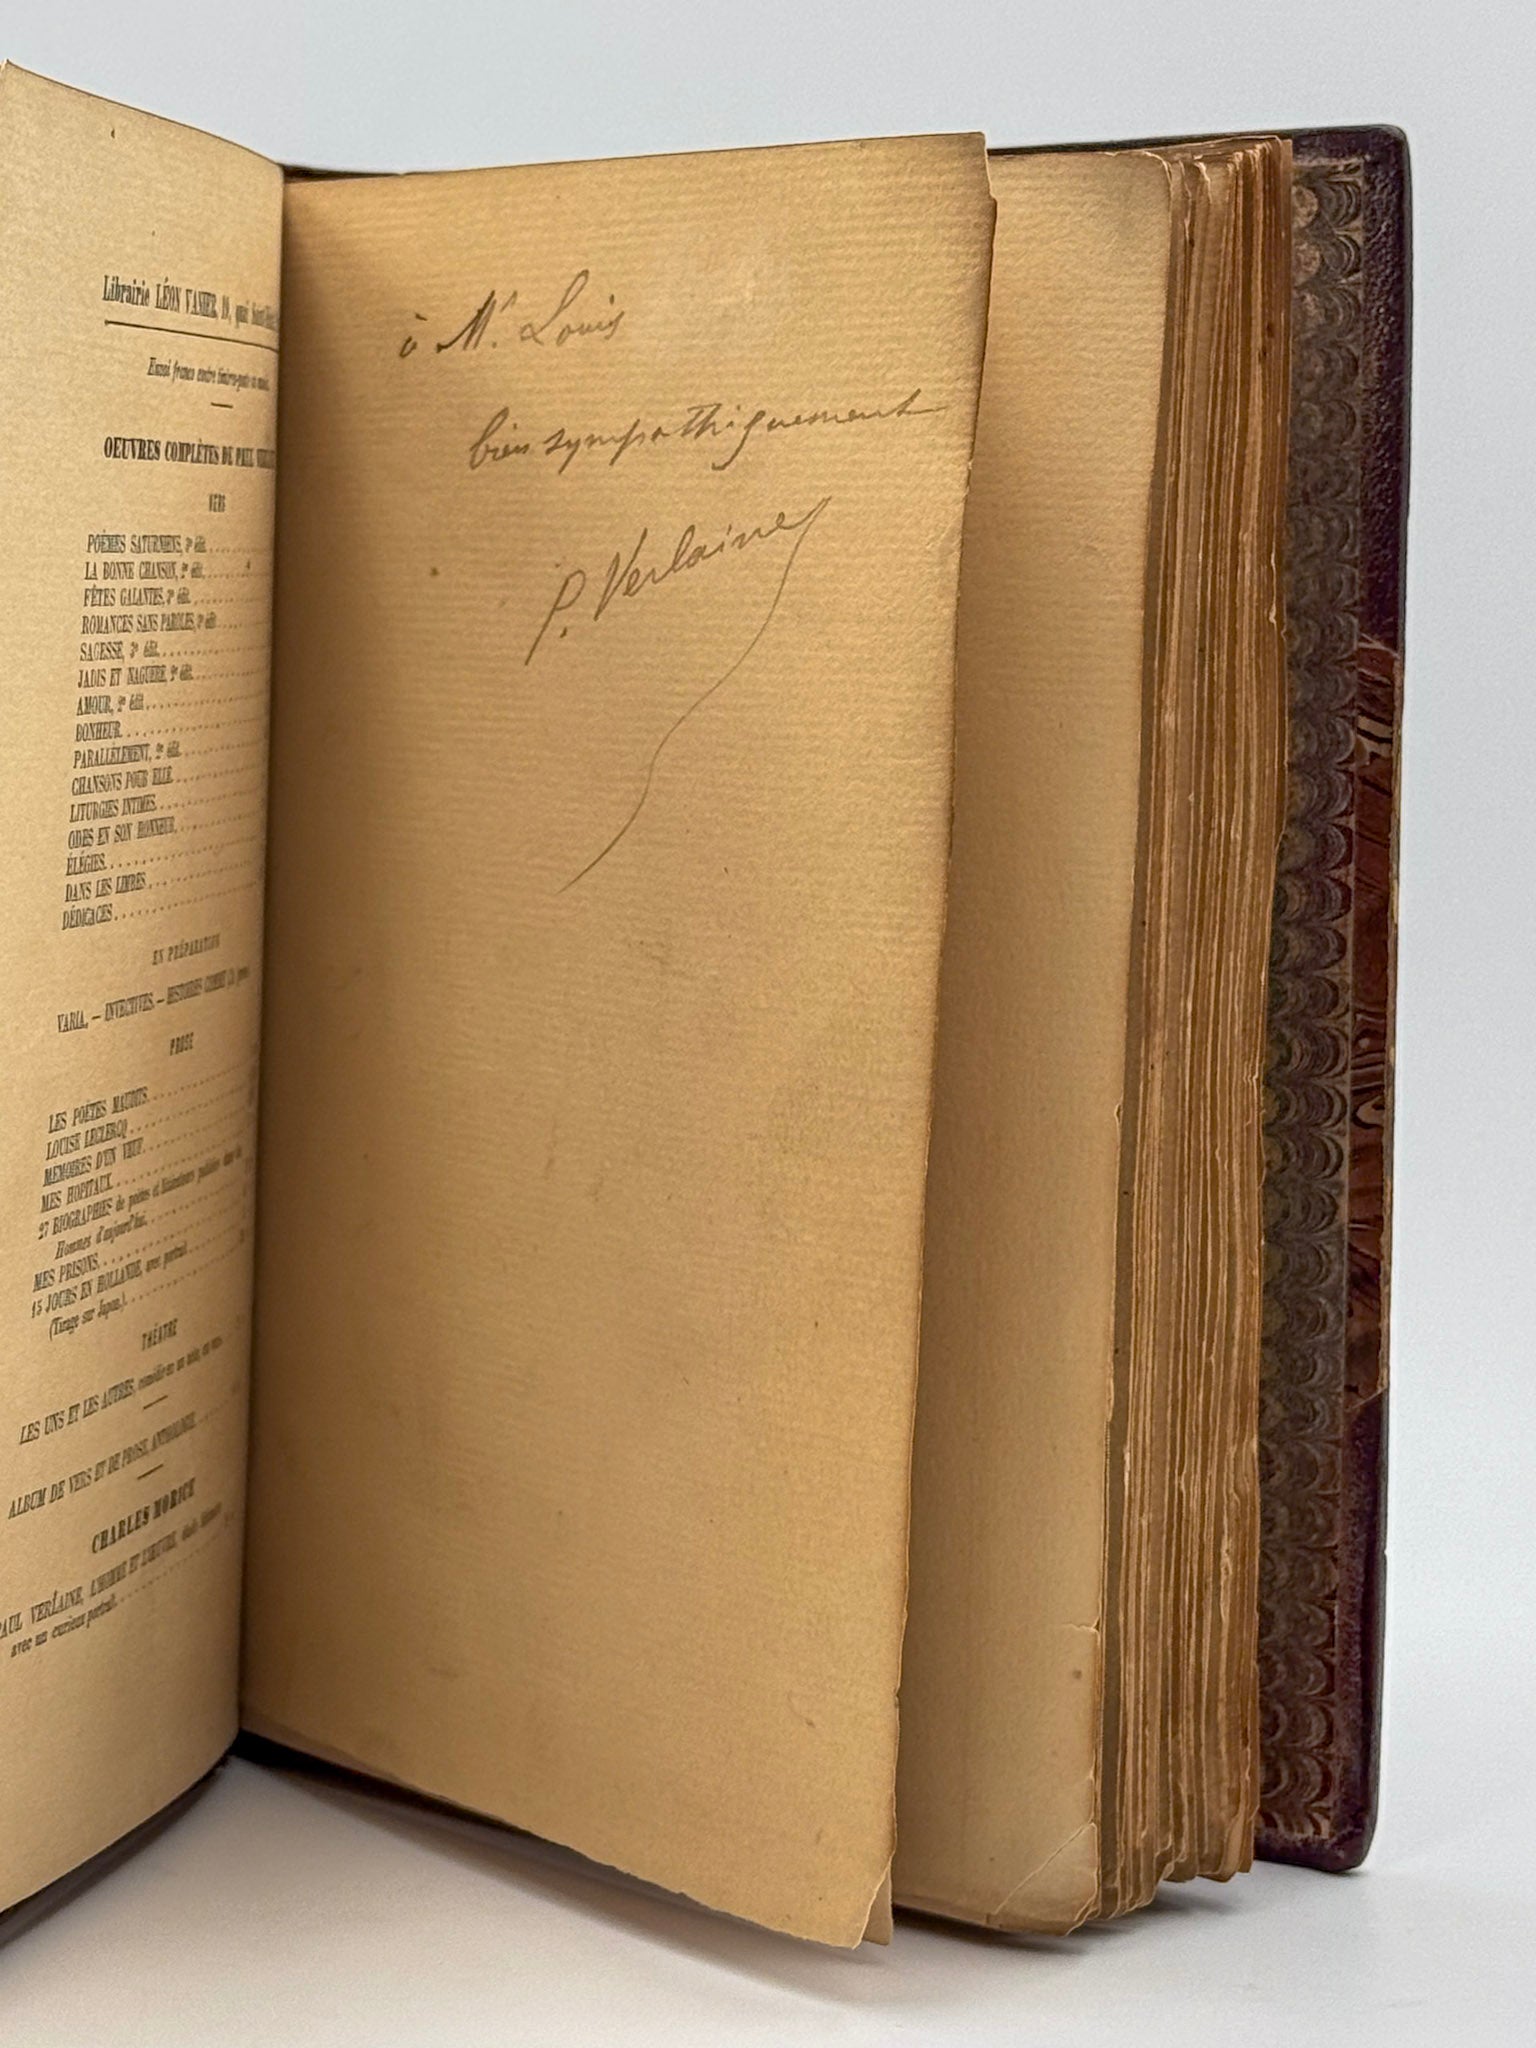 Librairie LÉON VANIER, 19, quai
Envoi franco contre timbres-poste ou mandat.
OEUVRES COMPLÈTES DE PAUL
VERS
POÈMES SATURNIENS, 3e édit.
LA BONNE CHANSON, 2e édit.
FÊTES GALANTES, 3e édit.
ROMANCES SANS PAROLES, 3e édit.
SAGESSE, 3e édit.
JADIS ET NAGUÈRE, 2e édit.
AMOUR, 2e édit.
BONHEUR
PARALLÈLEMENT, 2e édit.
CHANSONS POUR ELLE
LITURGIES INTIMES
ODES EN SON HONNEUR
ÉLÉGIES
DANS LES LIMBES
DÉDICACES
EN PRÉPARATION
VARIA. — INVECTIVES. — HISTOIRES COMME ÇA
PROSE
LES POÈTES MAUDITS
LOUISE LECLERCQ
MÉMOIRES D'UN VEUF
MES HOPITAUX
27 BIOGRAPHIES de poètes et littérateurs publiées dans les
Hommes d'aujourd'hui
MES PRISONS
15 JOURS EN HOLLANDE, avec portrait
(Tirage sur Japon)
THÉATRE
LES UNS ET LES AUTRES, comédie en un acte, en vers
ALBUM DE VERS ET DE PROSE, ANTHOLOGIE
CHARLES MORICE
PAUL VERLAINE, L'HOMME ET L'ŒUVRE, étude
avec un curieux portrait
à Mr. Louis
bien sympathiquement
P. Verlaine